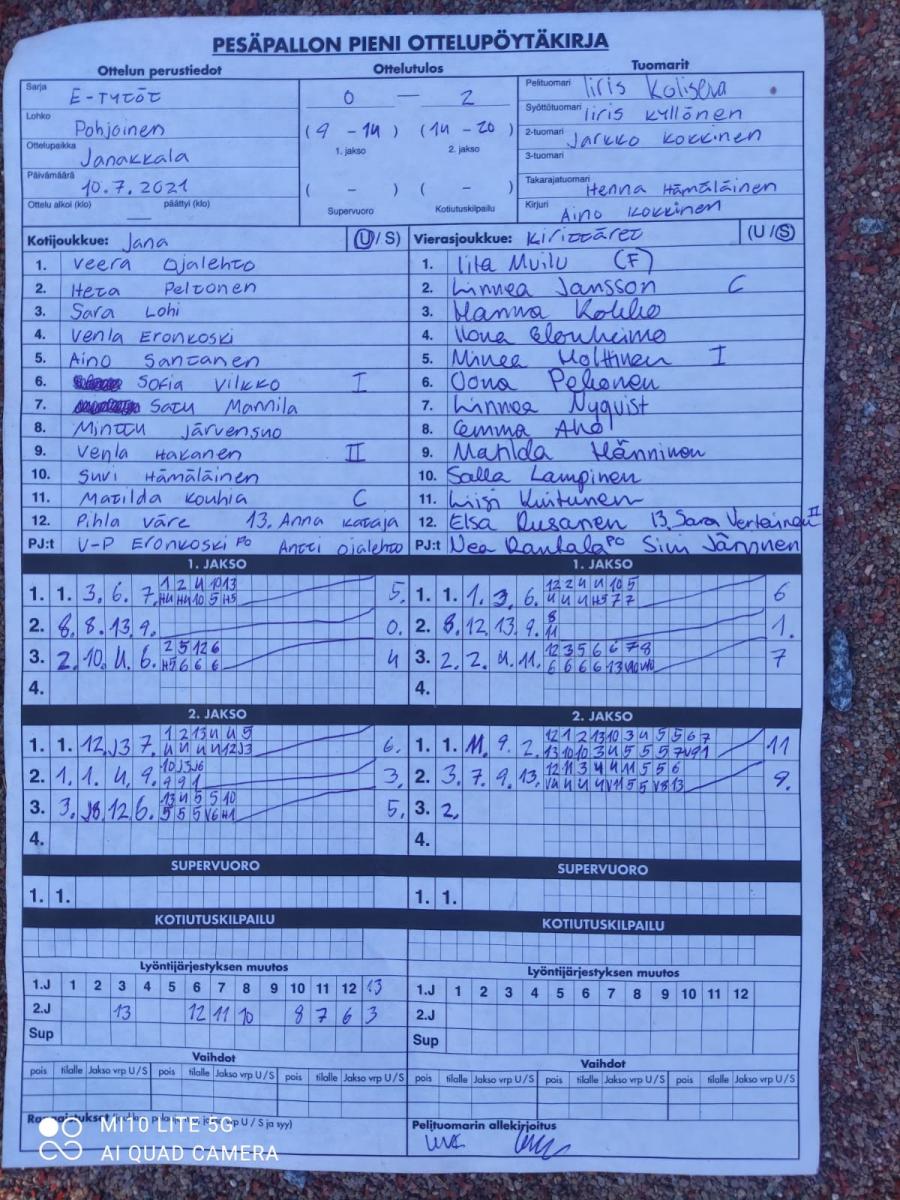 PESÄPALLON PIENI OTTELUPÖYTÄKIRJA
Ottelun perustiedot
Sarja E-TYTÖT
Lohko Pohjoinen
Ottelupaikka Janakkala
Päivämäärä 10.7.2021
Ottelu alkoi (klo) — päättyi (klo)
Ottelutulos
0 — 2
(9 - 14) (14 - 20)
1. jakso 2. jakso
( - ) ( - )
Supervuoro Kotiutuskilpailu
Tuomarit
Pelituomari Iiris Kolisera
Syöttötuomari Iiris Kyllönen
2-tuomari Jarkko Kokkinen
3-tuomari
Takarajatuomari Henna Hämäläinen
Kirjuri Aino Kokkinen
Kotijoukkue: Jana (U/S)
1. Veera Ojalehto
2. Heta Peltonen
3. Sara Lohi
4. Venla Eronkoski
5. Aino Santanen
6. Sofia Vilkko I
7. Satu Mannila
8. Minttu Järvensuo
9. Venla Hakanen II
10. Suvi Hämäläinen
11. Matilda Kouhia C
12. Pihla Väre 13. Anna Kataja
PJ:t V-P Eronkoski PO Antti Ojalehto
Vierasjoukkue: Kirittäret (U/S)
1. Iita Muilu (F)
2. Linnea Jansson C
3. Hanna Kokko
4. Ilona Elonheimo
5. Minea Holttinen I
6. Oona Pekonen
7. Linnea Nyqvist
8. Emma Aho
9. Matilda Hänninen
10. Salla Lampinen
11. Kuitunen
12. Elsa Rusanen 13. Sara Vertainen II
PJ:t Nea Rantala PO Sini Järvinen
1. JAKSO
1. 1. 3. 6. 7. 1 2 4 10 13 5.
H4 H4 10 5 H5
2. 8. 8. 13. 9. 0.
3. 2. 10. 4. 6. 2 5 12 6 4
H5 6 6 6
4.
1. JAKSO
1. 1. 1. 3. 6. 12 2 4 4 10 5 6
4 4 4 H5 7 7
2. 8. 12. 13. 9. 8 1.
11
3. 2. 2. 4. 11. 12 3 5 6 6 7 8 7
6 6 6 6 13
4.
2. JAKSO
1. 1. 12. J3 7. 1 2 13 4 4 5 6.
4 4 4 4 12 J3
2. 1. 1. 4. 9. 10 J3 J6 3.
9 9 1
3. 3. 12. 6. 13 4 5 5 10 5.
5 5 5 V6 H1
4.
2. JAKSO
1. 1. 11. 9. 2. 12 1 2 13 10 3 4 5 5 6 7 11
13 10 10 3 4 5 5 5 7 V9 1
2. 3. 7. 9. 13. 12 11 3 4 4 11 5 5 6 9.
V4 4 4 4 V11 5 5 V8 13
3. 2.
4.
SUPERVUORO
1. 1.
SUPERVUORO
1. 1.
KOTIUTUSKILPAILU
KOTIUTUSKILPAILU
Lyöntijärjestyksen muutos
1.J 1 2 3 4 5 6 7 8 9 10 11 12 13
2.J 13 12 11 10 8 7 6 3
Sup
Lyöntijärjestyksen muutos
1.J 1 2 3 4 5 6 7 8 9 10 11 12
2.J
Sup
Vaihdot
pois tilalle Jakso vrp U/S pois tilalle Jakso vrp U/S pois tilalle Jakso vrp U/S
Vaihdot
pois tilalle Jakso vrp U/S pois tilalle Jakso vrp U/S pois tilalle Jakso vrp U/S
Pelituomarin allekirjoitus
MI 10 LITE 5G
AI QUAD CAMERA